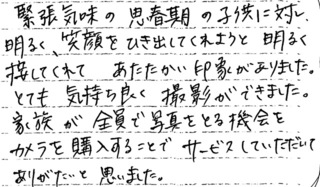 緊張気味の思春期の子供に対し、
明るく、笑顔をひき出してくれようと明るく
接してくれて あたたかい印象がありました。
とても気持ち良く撮影ができました。
家族が全員で写真をとる機会を
カメラを購入することでサービスしていただいて
ありがたいと思いました。